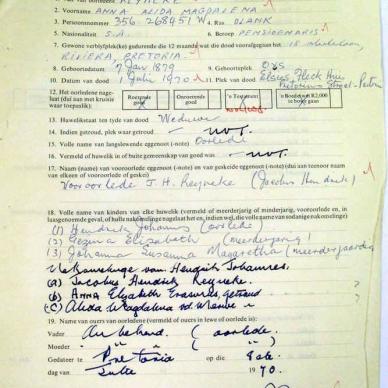 2. Voorname ANNA ALIDA MAGDALENA
3. Persoonsnommer 356 268451 W 4. Ras BLANK
5. Nasionaliteit S.A. 6. Beroep PENSIOENARIS
7. Gewone verblyfplek(ke) gedurende die 12 maande wat die dood voorafgegaan het
RIVIERA, PRETORIA.
8. Geboortedatum 7 Jan 1879 9. Geboorteplek OVS
10. Datum van dood 1 Julie 1970 11. Plek van dood
12. Het oorledene nage-
laat (dui aan met kruisie
waar toepaslik):
Roerende
goed
Onroerende
goed
'n Testament
'n Boedel wat R2,000
te bowe gaan
13. Huwelikstaat ten tyde van dood Weduwee
14. Indien getroud, plek waar getroud — NVT.
15. Volle name van langslewende eggenoot (-note) Oorlede
16. Vermeld of huwelik in of buite gemeenskap van goed was — NVT.
17. Naam (name) van vooroorlede eggenoot (-note) en van geskeide eggenoot (-note) (dui aan teenoor naam
van elkeen of vooroorlede of geskei)
Vooroorlede J. H. Reyneke (Jacobus Hendrik)
18. Volle name van kinders van elke huwelik (vermeld of meerderjarig of minderjarig, vooroorlede, en in
(1) Hendrik Johannes (oorlede)
(2) Gezina Elizabeth (meerderjarig)
(3) Johanna Susanna Magaretha (meerderjarig)
Nakomelinge van Hendrik Johannes.
(a) Jacobus Hendrik Reyneke.
(b) Anna Elizabeth Erasmus, getroud
(c) Alida Magdalena v.d. Merwe
19. Name van ouers van oorledene (vermeld of ouers in lewe of oorlede is):
Vader Onbekend. (oorlede.
Moeder " " ( "
Gedateer te Pretoria op die 8ste
dag van Julie 1970.